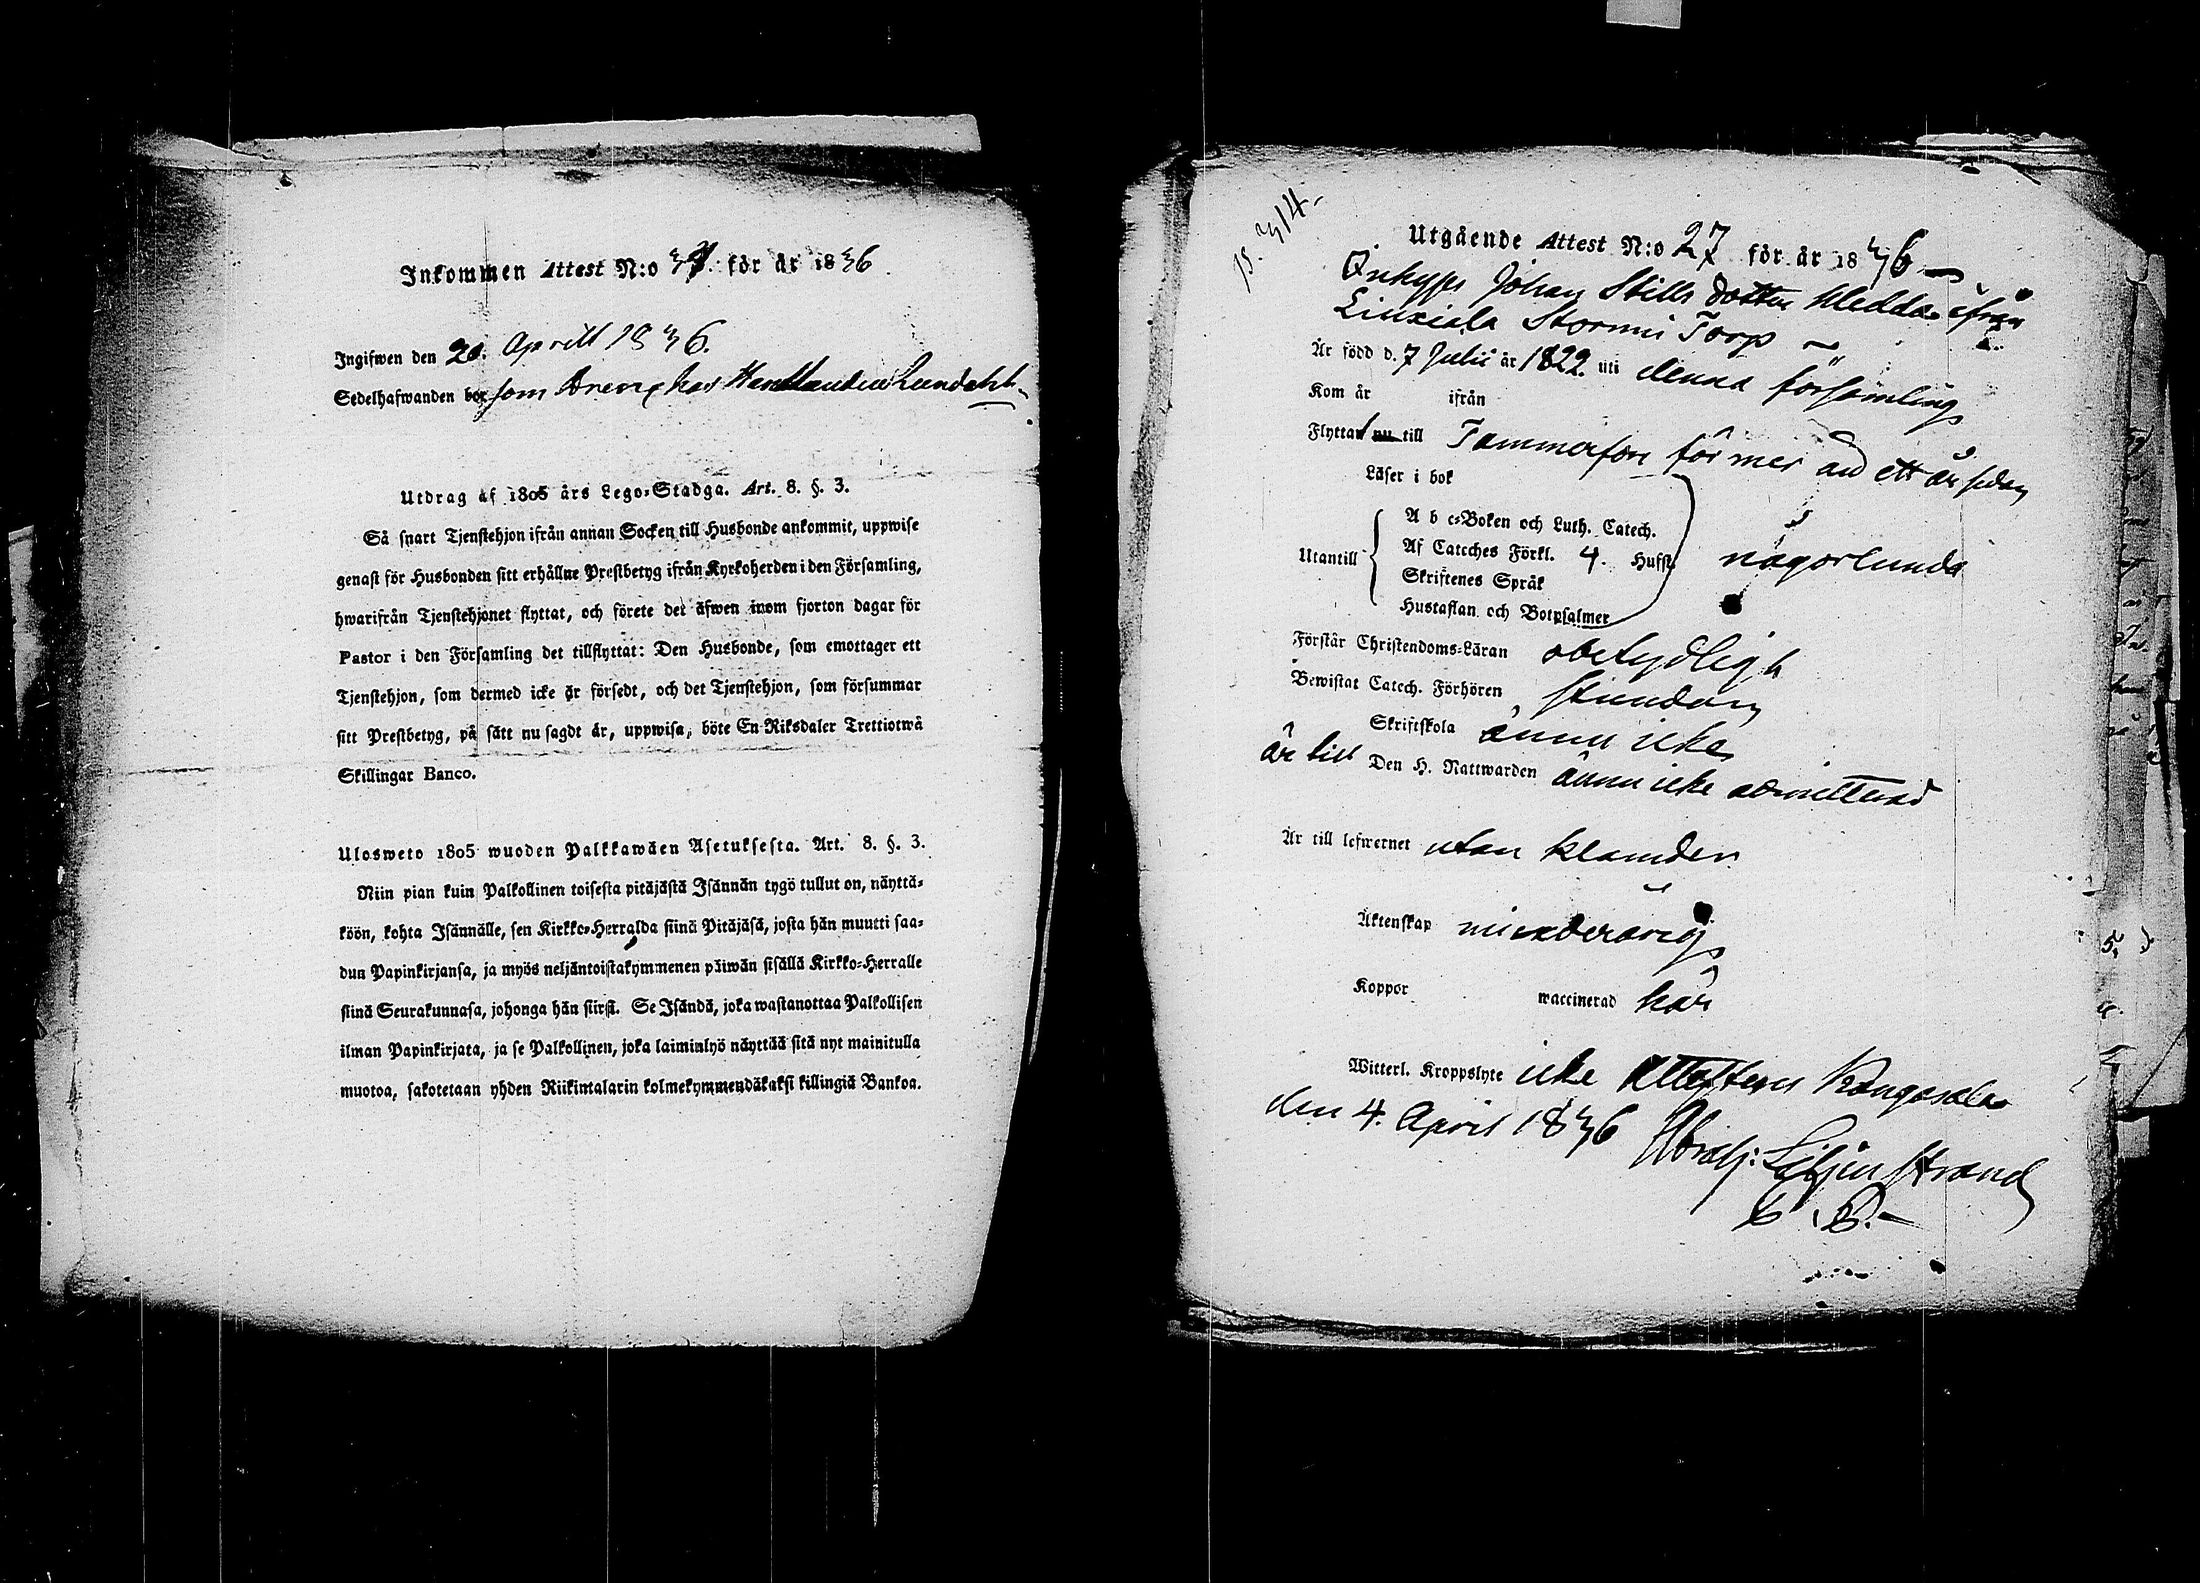 Inkommen Attest N:o för år 1836
Ingifwen den 20. Aprill 1836.
Sedelhafwanden bor som hos Handlanden Lundahl
Utdrag af 1805 års Lego-Stadga. Art. 8. §. 3.
Så snart Tjenstehjon ifrån annan Socken till Husbonde ankommit, uppwise
genast för Husbonden sitt erhållne Prestbetyg ifrån Kyrkoherden i den Församling,
hwarifrån Tjenstehjonet flyttat, och förete det äfwen inom fjorton dagar för
Pastor i den Församling det tillflyttat: Den Husbonde, som emottager ett
Tjenstehjon, som dermed icke är försedt, och det Tjenstehjon, som försummar
sitt Prestbetyg, på sätt nu sagdt är, uppwisa, böte En Riksdaler Trettiotwå
Skillingar Banco.
Ulosweto 1805 wuoden Palkkawäen Asetuksesta. Art. 8. §. 3.
Niin pian kuin Palkollinen toisesta pitäjästä Isännän tygö tullut on, näyttä-
köön, kohta Isännälle, sen Kirkko-Herralda siinä Pitäjäsä, josta hän muutti saa-
dun Papinkirjansa, ja myös neljäntoistakymmenen päiwän sisällä Kirkko-Herralle
siinä Seurakunnasa, johonga hän siirsi. Se Isändä, joka wastanottaa Palkollisen
ilman Papinkirjata, ja se Palkollinen, joka laiminlyö näyttää sitä nyt mainitulla
muotoa, sakotetaan yhden Riikintalarin kolmekymmendäkaksi killingiä Bankoa.
15. 314.
Utgående Attest N:o 27 för år 1836
Johan Stills dotter Hedda ifrån
Liuxiala Stormi Torp
Är född d. 7 Julii år 1822 uti denna församling
Kom år ifrån
Flyttat nu till Tammerfors för mer än ett år sedan
Läser i bok
Utantill A b c-Boken och Luth. Catech.
Af Cateches Förkl. 4. Hufst.
Skriftenes Språk
Hustaflan och Botpsalmer
någorlunda
Förstår Christendoms-Läran obetydligt
Bewistat Catech. Förhören stundom
Skriftskola ännu icke
är till Den H. Nattwarden ännu icke admitterad
Är till lefwernet utan klander
Äktenskap minderårig
Koppor waccinerad har
Witterl. Kroppslyte icke Attesteras Kangasala
den 4. April 1836 Abrah: Liljenstrand